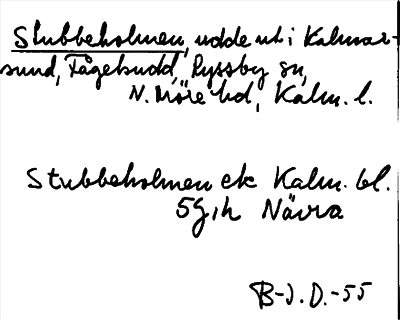 Stubbeholmen, udde ut i Kalmar-
sund, Tågebudd, Ryssby sn,
N. Möre hd, Kalm. l.
Stubbeholmen ek Kalm. bl.
5g,h Nävra
B-J.D.-55